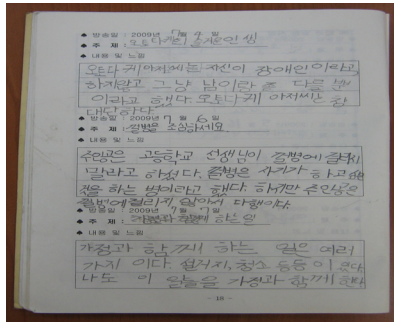 ◆ 방송일 : 2009년 7월 4일
◆ 주 제 : 오토다케의 즐거운 인생
◆ 내용 및 느낌
오토다케 아저씨는 자신이 장애인이라고
하지않고 그냥 남이랑 좀 다를 뿐
이라고 했다 오토다케 아저씨는 참
대단하다.
◆ 방송일 : 2009년 7월 6일
◆ 주 제 : 썰병을 조심하세요.
◆ 내용 및 느낌
주인공은 고등학교 선생님이 껄병에 걸리지
말라고 하셨다. 껄병은 자기가 하고
것을 하는 병이라고 했다. 하지만 주인공은
껄병에 걸리지 않아서 다행이다.
◆ 방송일 : 2009년 7월 7일
◆ 주 제 : 가정과 함께 하는 일
◆ 내용 및 느낌
가정과 함께 하는 일은 여러
가지 이다. 설거지, 청소 등등이 있다.
나도 이 일들을 가정과 함께 한다.
- 18 -